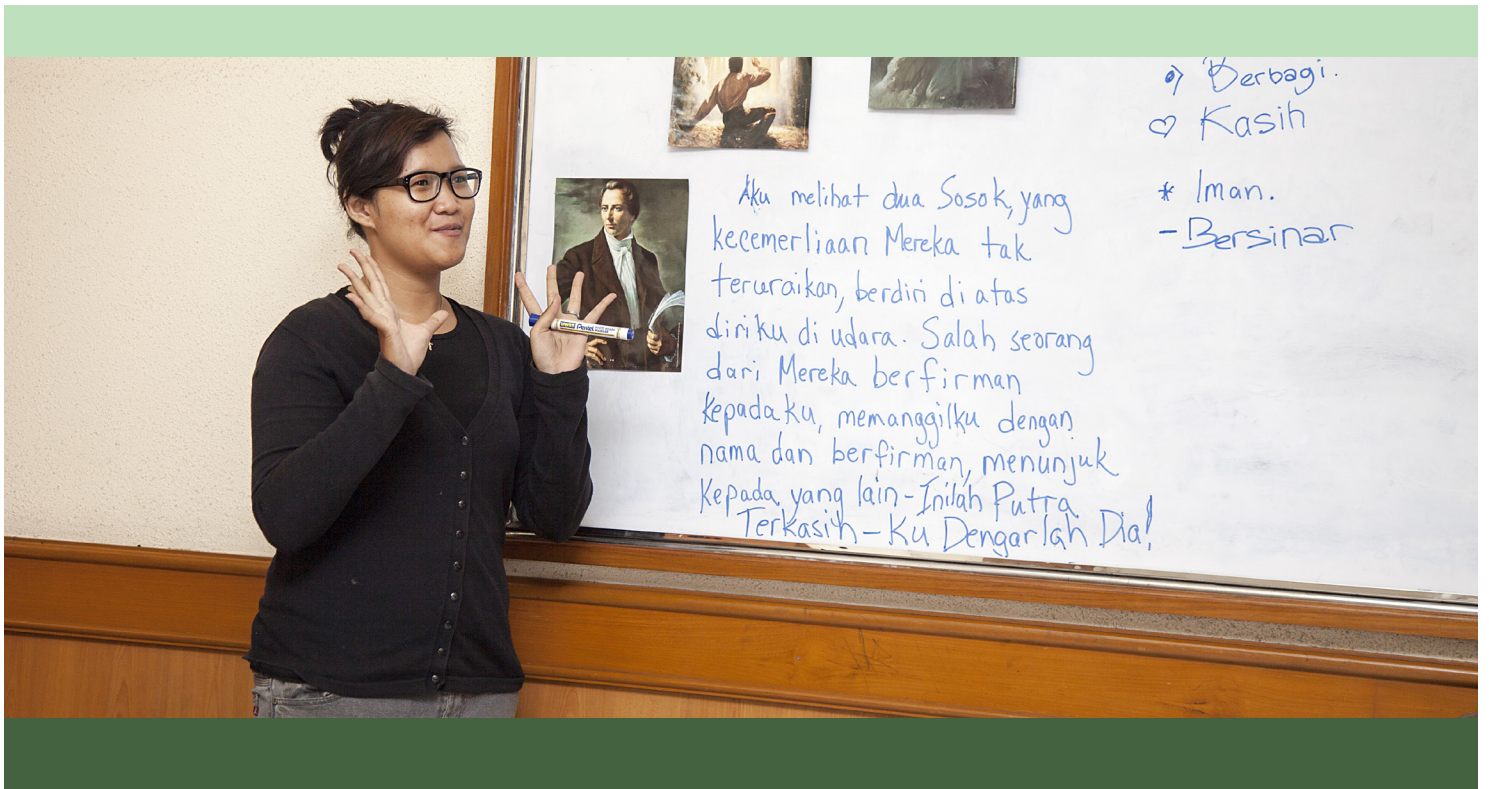 Aku melihat dua Sosok, yang
kecemerliaan Mereka tak
teruraikan, berdiri di atas
diriku di udara. Salah seorang
dari Mereka berfirman
kepadaku, memanggilku dengan
nama dan berfirman, menunjuk
kepada yang lain - Inilah Putra
Terkasih - Ku Dengarlah Dia!
Berbagi.
♡ Kasih
* Iman.
- Bersinar
Pentel